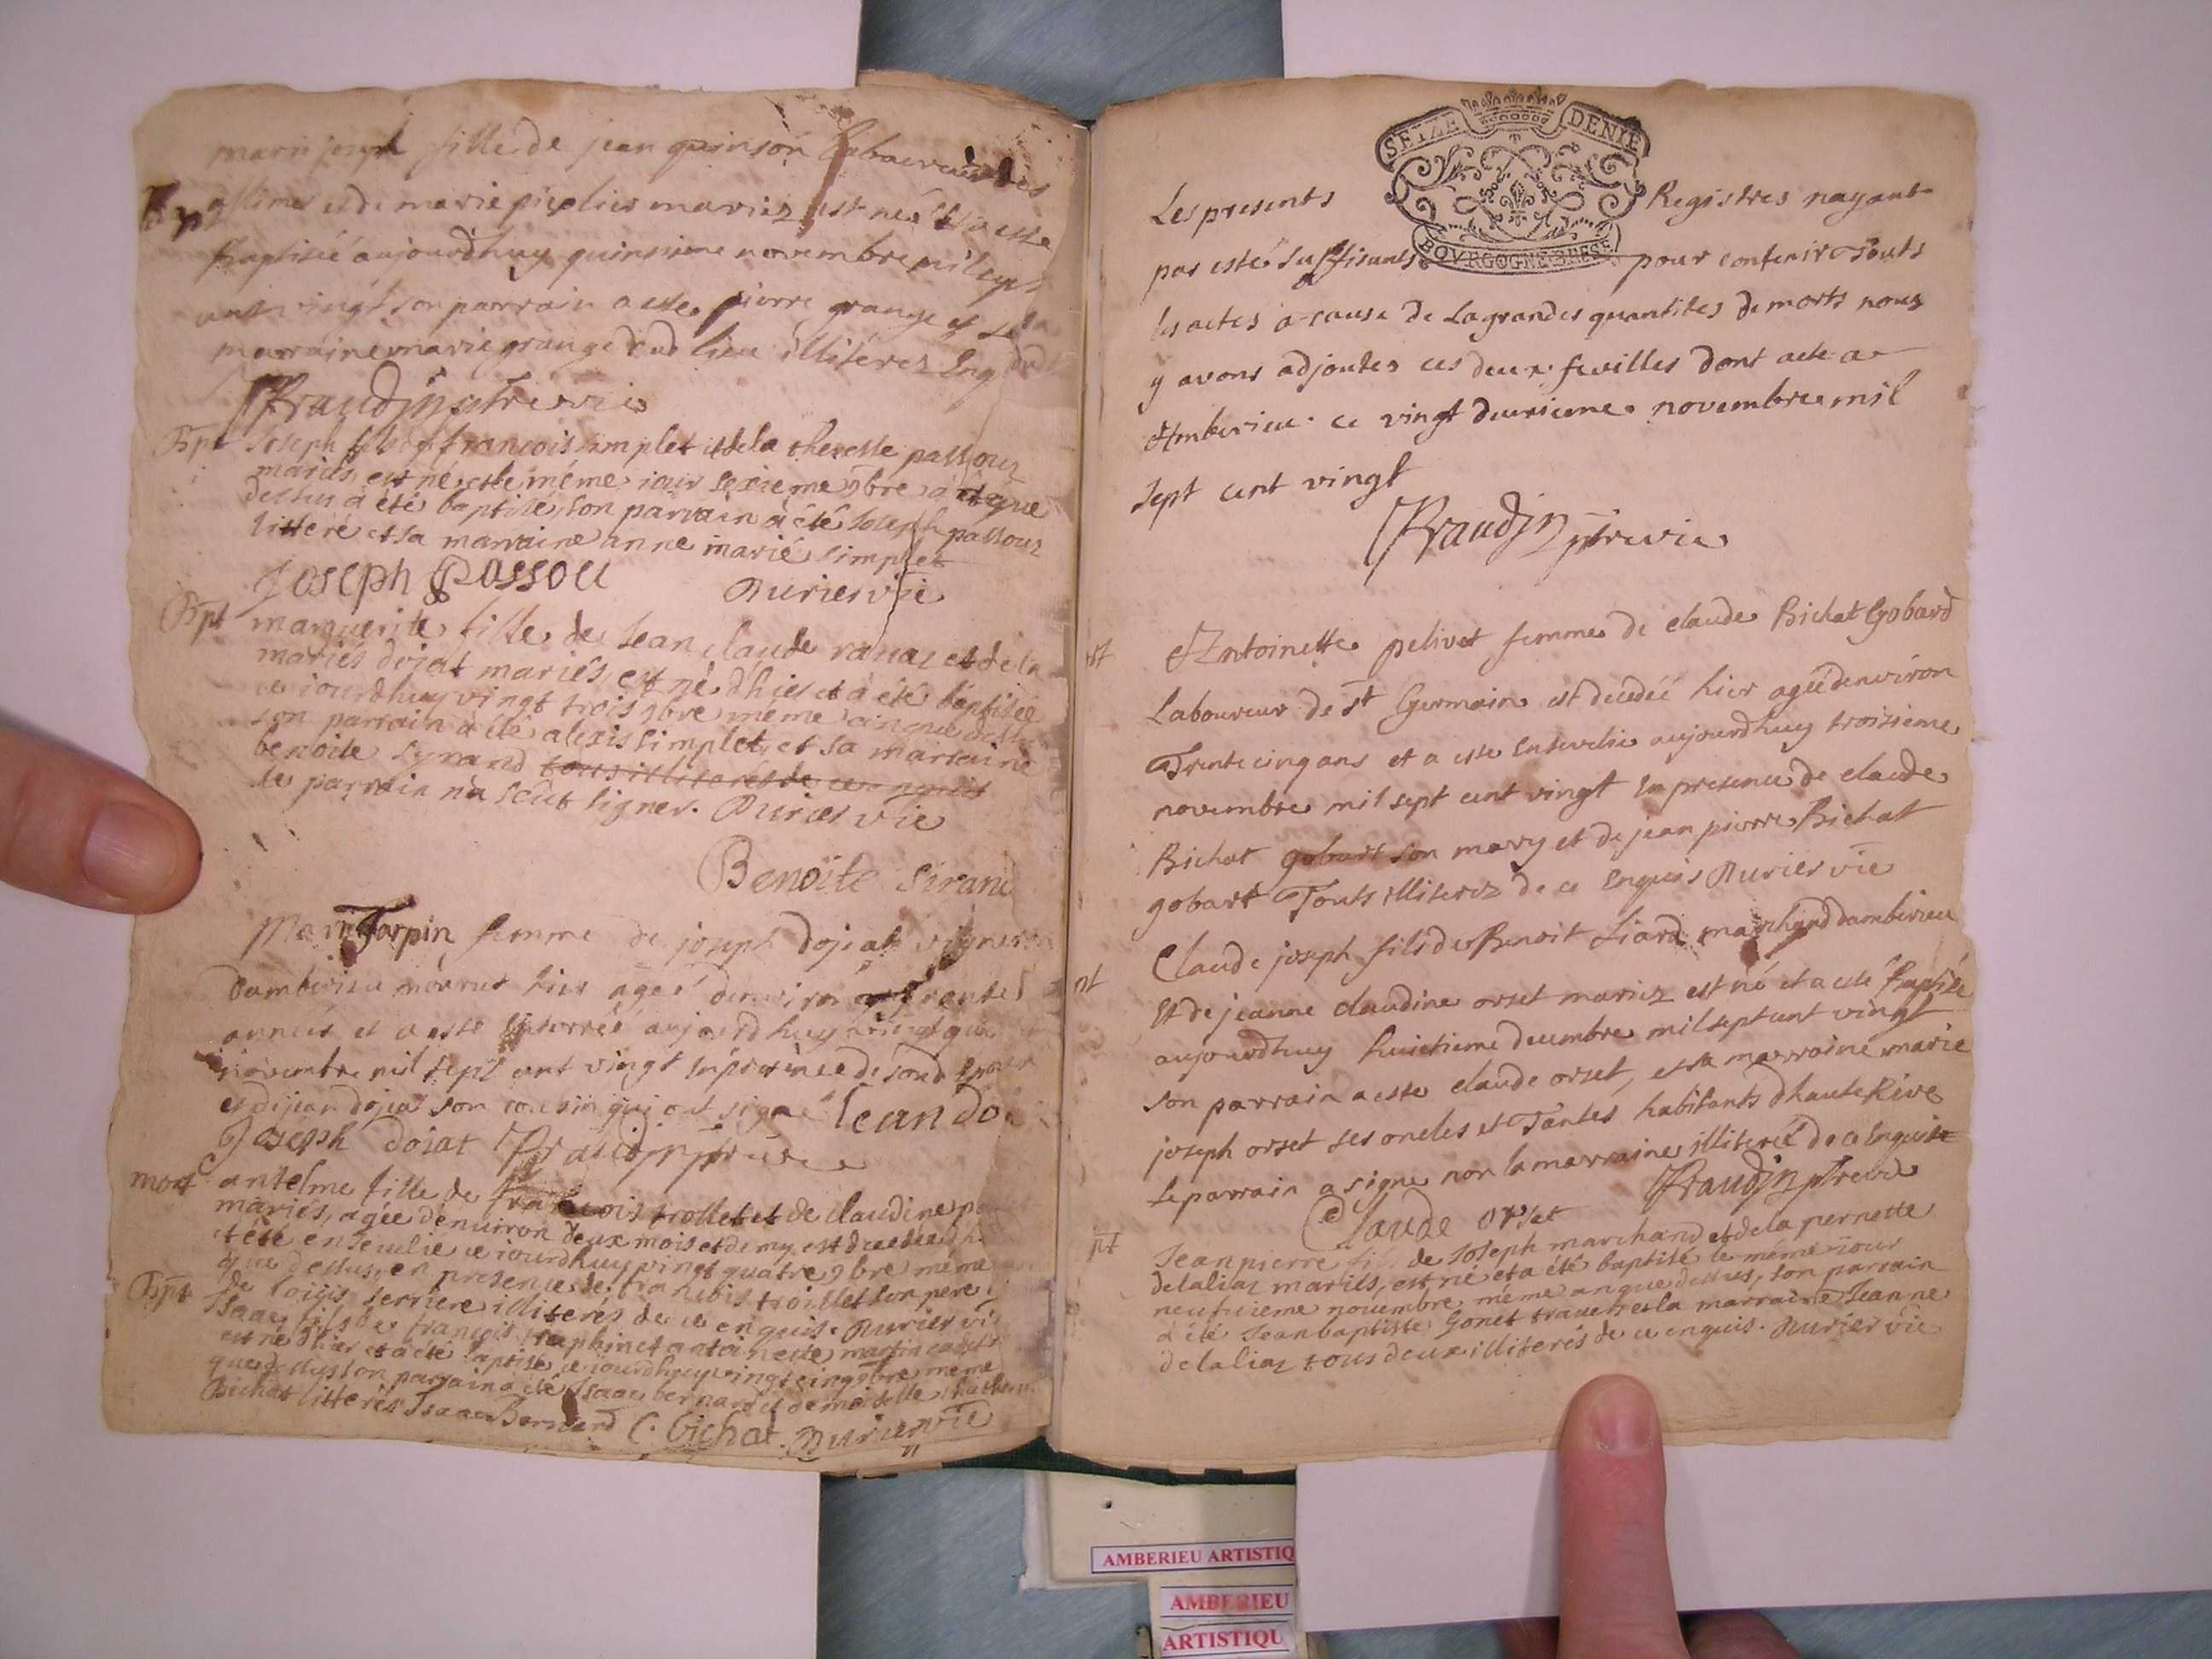 marie joseph fille de jean quinson laboureur des
Bp
allimes et de marie pieplier mariez est née et a esté
baptisée aujourdhuy quinsieme novembre mil sept
cent vingt son parrain a esté pierre grange et sa
marraine marie grange dud lieu illitérez Enq
Braudin ptre vic
Bpt Joseph fils de francois simplet et de la theresse passour
mariés, est né et le même jour sexieme 9bre a été que
dessus a été baptisé, son parrain à été Joseph passour
litteré et sa marraine anne marie simplet
Joseph Possou Durier vic
Bpt marguerite fille de Jean claude ravaz et de la
mariés dojat mariés, est né d'hier et à été baptisée
ce jourdhuy vingt trois 9bre même an que dessus
son parrain à été alexis simplet, et sa marraine
benoite syrand tous illiterés de ce enquis
le parrain n'a sçeut signer. Durier vic
Benoite Sirand
Marie Tarpin femme de joseph dojeat vigneron
Damberieu mourut hier agée denviron trente
années et a esté enterrée aujourdhuy vingt
novembre mil sept cent vingt en présence de sond
et de jean dojat son cousin qui ont signé Jean Do
Joseph dojat Braudin ptre vic
mort antelme fille de francois trollet et de claudine
mariés, agée d'enuiron deux mois et demy est decedée
et été enseuelie ce jourdhuy vingt quatre 9bre même
que dessus, en presence de francois trollet son pere
de loüis serriere illiterés de ce enquis. Durier vic
Bpt Isaac fils de francois et antoinette martin
est né d'hier et a été baptisé ce jourdhuy vingt cinq 9bre meme
que dessus son parrain a été Isaac bernard et demoiselle
Bichat litterés Isaac Bernard C. bichat. Durier vic
SEIZE DENIE
BOVRGOGNE BRESE
Les presents Registres nayant
pas esté suffisants pour contenir Touts
les actes a cause de La grandes quantités de morts nous
y avons adjoutes ces deux feuilles dont acte a
Amberieu ce vingt deuxieme novembre mil
sept cent vingt
Braudin ptre vic
Antoinette pelivet femme de claude Bichat Gobard
Laboureur de St Germain est décédée hier agée denviron
Trente cinq ans et a esté Ensevelie aujourdhuy troisieme
novembre mil sept cent vingt En presence de claude
Bichat gobart son mary et de jean pierre Bichat
gobart Touts illiterez de ce Enquis Durier vic
Claude joseph fils de Benoit Liard marchand damberieu
Et de jeanne claudine orset mariez est né et a esté Baptisé
aujourdhuy huictieme decembre mil sept cent vingt
son parrain a esté claude orset, et sa marraine marie
joseph orset ses oncles et Tantes habitants d haute Rive
Le parrain a signé non la marraine illiterée de ce Enquise
Claude orset Braudin ptre vic
Jean pierre fils de Joseph marchand et de la pernette
delaliaz mariés, est né et a été baptisé le même jour
neufuieme nouembre même an que dessus, son parrain
à été Jean baptiste Gonet et la marraine Jeanne
delaliaz tous deux illiterés de ce enquis. Durier vic
AMBERIEU ARTISTIQ
AMBERIEU
ARTISTIQU